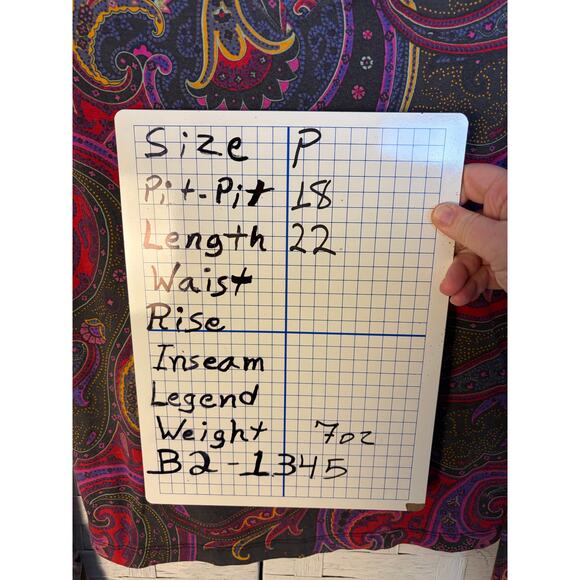 Size P
Pit-Pit 18
Length 22
Waist
Rise
Inseam
Legend
Weight 7oz
B2-1345